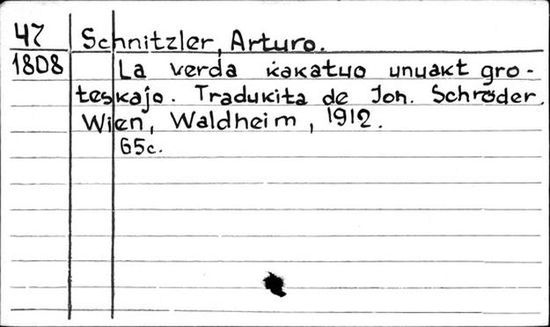 47 Schnitzler, Arturo.
1808 La verda kakatuo unuakt gro-
teskaĵo. Tradukita de Joh. Schröder.
Wien, Waldheim, 1912.
65c.